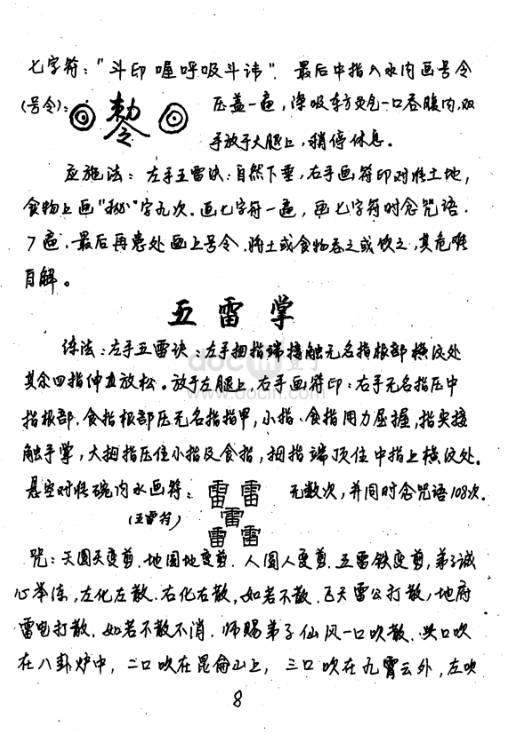 七字符："斗印喔呼吸斗讳". 最后中指入水内画号令
(号令): 勅令 压盖一遍, 深吸东方炁一口吞腹内, 双
手放于大腿上, 稍停休息.
应施法: 左手五雷诀: 自然下垂, 右手画符印对准土地,
食物上画"秘"字九次. 画七字符一遍, 画七字符时念咒语.
7遍. 最后再患处画上号令. 将土或食物吞之或饮之, 其危难
自解。
五雷学
练法: 左手五雷诀: 左手拇指端接触无名指根部横纹处
其余四指伸直放松. 放于左腿上, 右手画符印: 右手无名指压中
指根部. 食指根部压无名指指甲, 小指、食指用力屈握, 指尖接
触手掌, 大拇指压住小指及食指, 拇指端顶住中指上横纹处.
悬空对准碗内水画符: 雷雷雷雷雷 无数次, 并同时念咒语108次.
(五雷符)
咒: 天圆天变剪. 地圆地变剪. 人圆人变剪. 五雷铁变剪, 弟子诚
心举法, 左化左散. 右化右散, 如若不散. 飞天雷公打散, 地府
雷电打散. 如若不散不消. 师赐弟子仙风一口吹散. 一口吹
在八卦炉中, 二口吹在昆仑山上, 三口吹在九霄云外, 左吹
8
docin 豆丁
www.docin.com